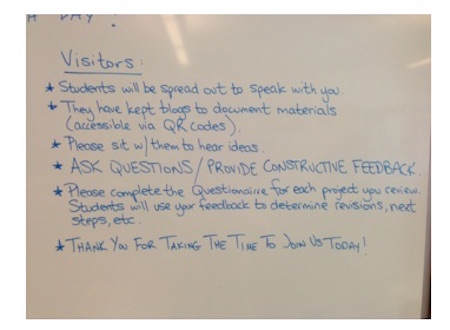 A DAY!
Visitors:
* Students will be spread out to speak with you.
* They have kept blogs to document materials
(accessible via QR codes).
* Please sit w/ them to hear ideas.
* ASK QUESTIONS/PROVIDE CONSTRUCTIVE FEEDBACK.
* Please complete the Questionaire for each project you review.
Students will use your feedback to determine revisions, next
steps, etc.
* THANK YOU FOR TAKING THE TIME TO JOIN US TODAY!